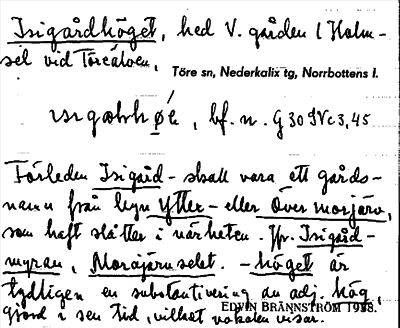 Isigårdhöget, hed V. gården l Holm-
sel vid Töreälven.
Töre sn, Nederkalix tg, Norrbottens l.
bf. n. G 30 IV c 3,45
Förleden Isigård- skall vara ett gårds-
namn från byn Ytter- eller Över morjärv,
som haft slåtter i närheten. Jfr. Isigård-
myran, Morajärvselet. -höget är
tydligen en substantivering av adj. hög,
gjord i sen tid, vilket vokalen visar.
EDVIN BRÄNNSTRÖM 1938.